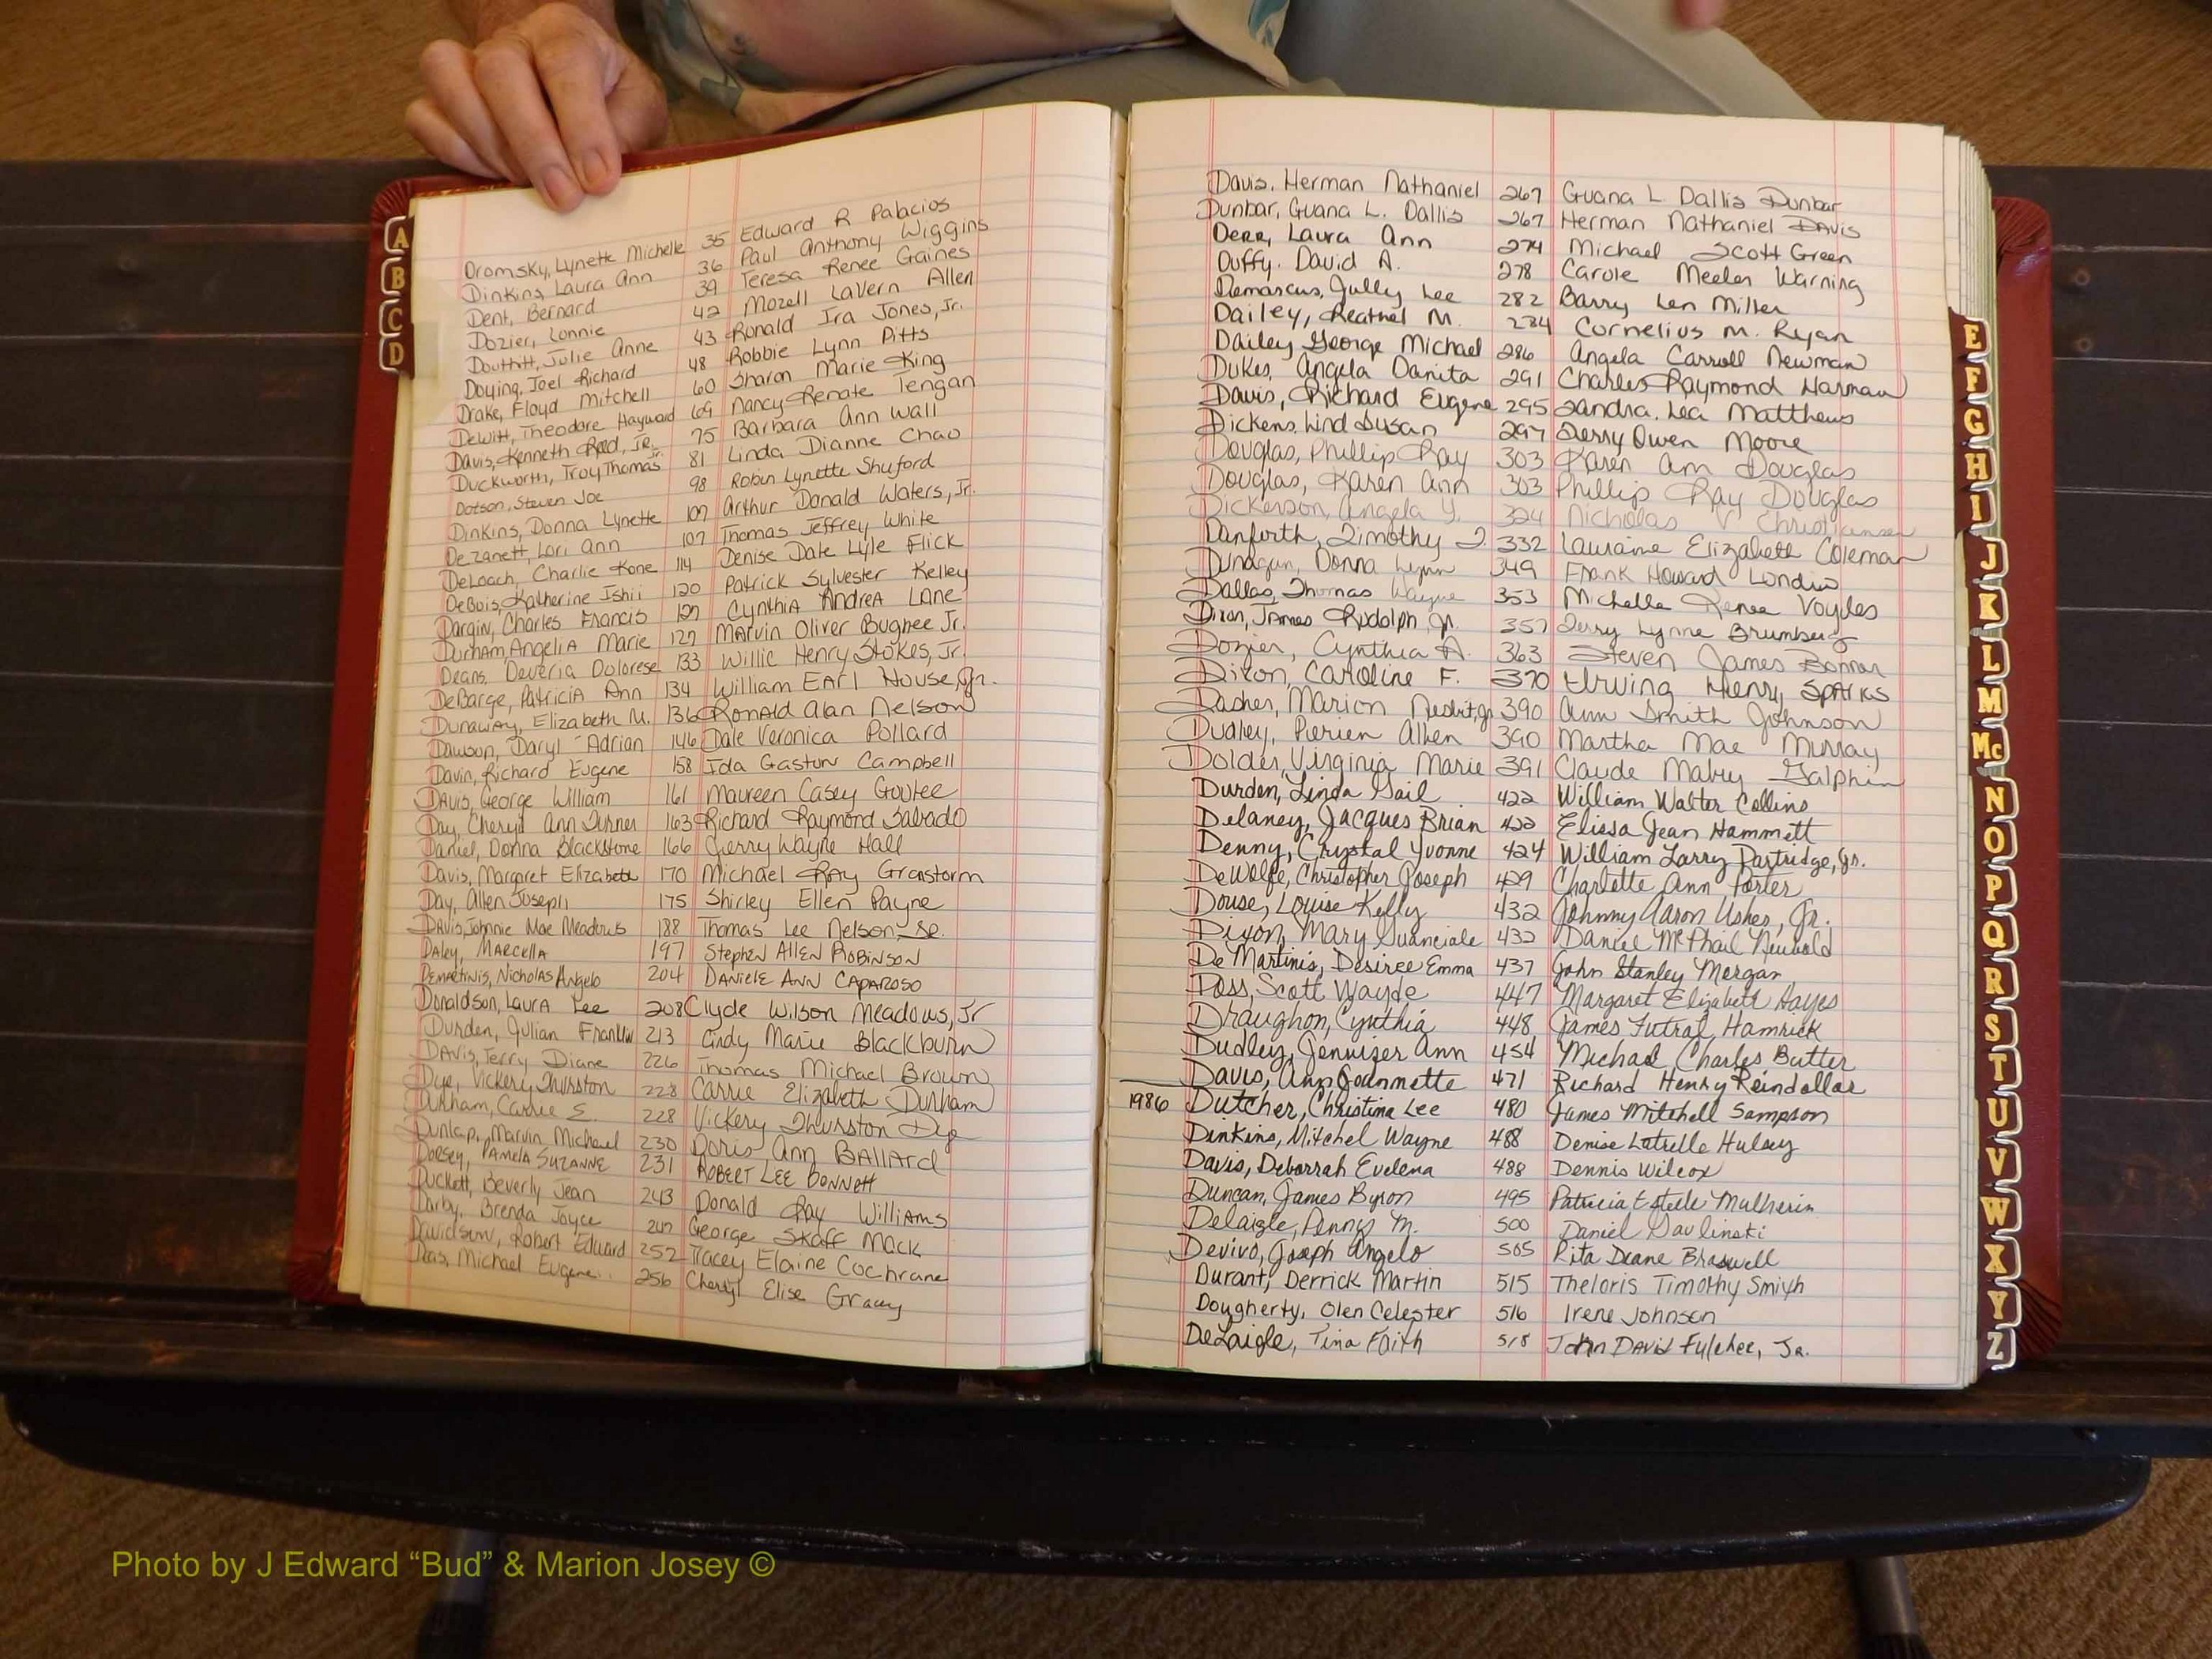 A
B
C
D
Dromsky, Lynette Michelle 35 Edward R Palacios
Dinkins, Laura Ann 36 Paul Anthony Wiggins
Dent, Bernard 39 Teresa Renee Gaines
Dozier, Lonnie 42 Mozell LaVern Allen
Douthitt, Julie Anne 43 Ronald Ira Jones, Jr.
Doying, Joel Richard 48 Robbie Lynn Pitts
Drake, Floyd Mitchell 60 Sharon Marie King
DeWitt, Theodore Hayward 69 Nancy Renate Tengan
Davis, Kenneth Rad, JR. 75 Barbara Ann Wall
Duckworth, Troy Thomas Jr. 81 Linda Dianne Chao
Dotson, Steven Joe 98 Robin Lynette Shuford
Dinkins, Donna Lynette 107 Arthur Donald Waters, Jr.
DeZanett, Lori Ann 107 Thomas Jeffrey White
DeLoach, Charlie Kone 114 Denise Date Lyle Flick
DeBois, Katherine Ishii 120 Patrick Sylvester Kelley
Dargin, Charles Francis 127 Cynthia Andrea Lane
Durham, Angelia Marie 127 Marvin Oliver Bugnee Jr.
Deans, Deveria Dolorese 133 Willie Henry Stokes, Jr.
DeBarge, Patricia Ann 134 William Earl House, Jr.
Dunaway, Elizabeth M. 136 Ronald Alan Nelson
Dawson, Daryl Adrian 146 Dale Veronica Pollard
Davin, Richard Eugene 158 Ida Gaston Campbell
Davis, George William 161 Maureen Casey Goutee
Day, Cheryl Ann Turner 163 Richard Raymond Salvado
Daniel, Donna Blackstone 166 Jerry Wayne Hall
Davis, Margaret Elizabeth 170 Michael Ray Granstorm
Day, Allen Joseph 175 Shirley Ellen Payne
Davis, Johnnie Mae Meadows 188 Thomas Lee Nelson, Sr.
Daley, Marcella 197 Stephen Allen Robinson
Demartinis, Nicholas Angelo 204 Daniele Ann Caparoso
Donaldson, Laura Lee 208 Clyde Wilson Meadows, Jr
Durden, Julian Franklin 213 Cindy Marie Blackburn
Davis, Terry Diane 226 Thomas Michael Brown
Dye, Vickery Thurston 228 Carrie Elizabeth Durham
Durham, Carrie E. 228 Vickery Thurston Dye
Dunlap, Marvin Michael 230 Doris Ann Ballard
Dorsey, Pamela Suzanne 231 Robert Lee Bennett
Duckett, Beverly Jean 243 Donald Ray Williams
Darby, Brenda Joyce 247 George Skaff Mack
Davidson, Robert Edward 252 Tracey Elaine Cochrane
Deas, Michael Eugene 256 Cheryl Elise Gracey
Davis, Herman Nathaniel 267 Guana L Dallis Dunbar
Dunbar, Guana L. Dallis 267 Herman Nathaniel Davis
Derr, Laura Ann 274 Michael Scott Green
Duffy, David A. 278 Carole Meeler Warning
Demarcus, Jully Lee 282 Barry Len Miller
Dailey, Reathel M. 284 Cornelius M. Ryan
Dailey George Michael 286 Angela Carroll Newman
Dukes, Angela Danita 291 Charles Raymond Harman
Davis, Richard Eugene 295 Sandra Lea Matthews
Dickens, Lind Susan 297 Jerry Owen Moore
Douglas, Phillip Ray 303 Karen Ann Douglas
Douglas, Karen Ann 303 Phillip Ray Douglas
Dickerson, Angela Y. 324 Nicholas V Christiansen
Danforth, Timothy J. 332 Lauraine Elizabeth Coleman
Dunagun, Donna Lynn 349 Frank Howard Lundin
Dallas, Thomas Wayne 353 Michelle Renee Voyles
Dixon, James Rudolph, Jr. 357 Jerry Lynne Brumberg
Dozier, Cynthia A. 363 Steven James Bonnar
Dixon, Caroline F. 370 Irving Henry Sparks
Dasher, Marion Nesbit, Jr 390 Ann Smith Johnson
Dudley, Perien Allen 390 Martha Mae Murray
Dolder, Virginia Marie 391 Claude Mabry Galphin
Durden, Linda Gail 422 William Walter Collins
Delaney, Jacques Brian 422 Elissa Jean Hammett
Denny, Crystal Yvonne 424 William Larry Partridge, Jr.
DeWolfe, Christopher Joseph 429 Charlette Ann Porter
Douse, Louise Kelly 432 Johnny Aaron Usher, Jr.
Dixon, Mary Guanciale 432 Daniel McPhail Neuvold
De Martinis, Desiree Emma 437 John Stanley Morgan
Doss, Scott Wayde 447 Margaret Elizabeth Hayes
Draughon, Cynthia 448 James Futral Hamrick
Dudley, Jennizer Ann 454 Michael Charles Butter
Davis, Ann Joannette 471 Richard Henry Reindollar
1986 Dutcher, Christina Lee 480 James Mitchell Sampson
Dinkins, Mitchel Wayne 488 Denise Latrelle Hulsey
Davis, Deborrah Evelena 488 Dennis Wilcox
Duncan, James Byron 495 Patricia Estelle Mulherin
Delaigle, Pennys M. 500 Daniel Pavlinski
Devivo, Joseph Angelo 505 Rita Deane Braswell
Durant, Derrick Martin 515 Theloris Timothy Smith
Dougherty, Olen Celester 516 Irene Johnson
DeLaigle, Tina Faith 518 John David Fulcher, Jr.
E
F
G
H
I
J
K
L
M
Mc
N
O
P
Q
R
S
T
U
V
W
X
Y
Z
Photo by J Edward “Bud” & Marion Josey ©